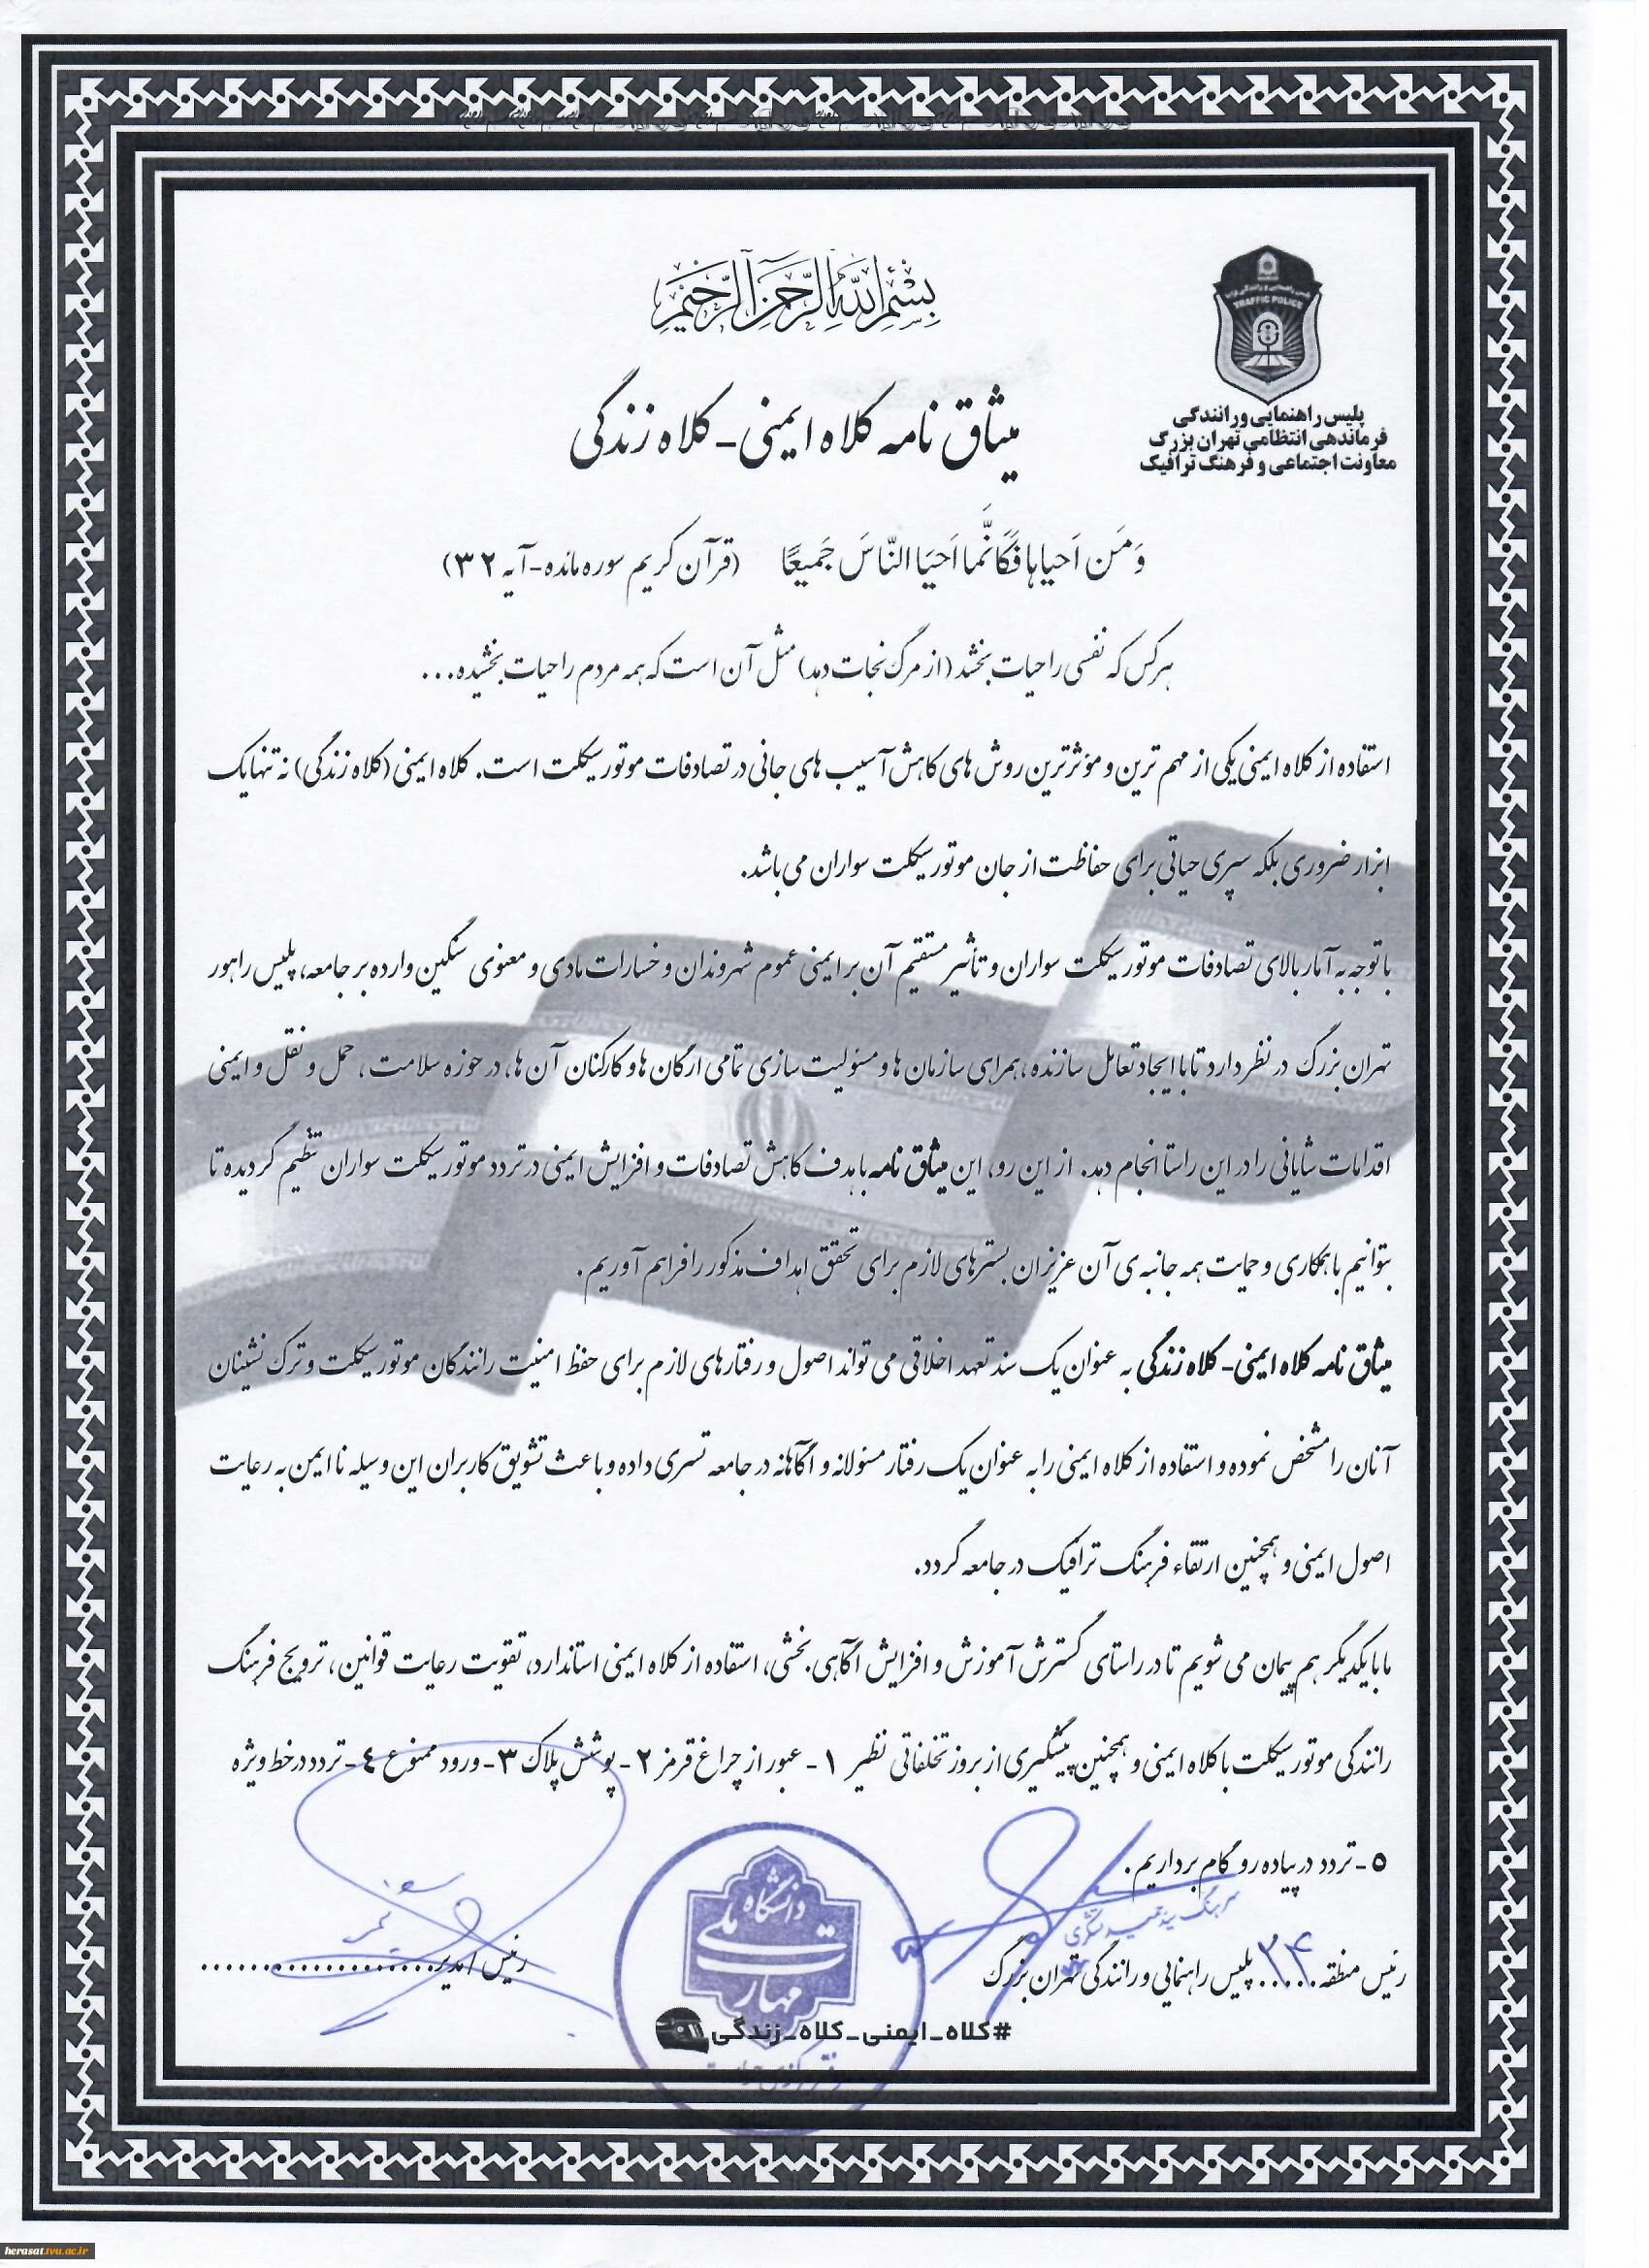 بسم الله الرحمن الرحیم
TRAFFIC POLICE
پلیس راهنمایی ورانندگی
فرماندهی انتظامی تهران بزرگ
معاونت اجتماعی و فرهنگ ترافیک
میثاق نامه کلاه ایمنی - کلاه زندگی
وَ مَن اَحیاها فَکَاَنَّما اَحیَا النّاسَ جَمیعًا (قرآن کریم سوره مائده - آیه ۳۲)
هرکس که نفسی را حیات بخشد (از مرگ نجات دهد) مثل آن است که همه مردم را حیات بخشیده...
استفاده از کلاه ایمنی یکی از مهم ترین و مؤثرترین روش های کاهش آسیب های جانی در تصادفات موتورسیکلت است. کلاه ایمنی (کلاه زندگی) نه تنها یک
ابزار ضروری بلکه سپری حیاتی برای حفاظت از جان موتورسیکلت سواران می باشد.
با توجه به آمار بالای تصادفات موتورسیکلت سواران و تأثیر مستقیم آن بر ایمنی عموم شهروندان و خسارات مادی و معنوی سنگین وارده بر جامعه، پلیس راهور
تهران بزرگ در نظر دارد تا با ایجاد تعامل سازنده، همراهی سازمان ها و مسئولیت سازی تمامی ارگان ها و کارکنان آن ها، در حوزه سلامت، حمل و نقل و ایمنی
اقدامات شایانی را در این راستا انجام دهد. از این رو، این میثاق نامه با هدف کاهش تصادفات و افزایش ایمنی در تردد موتورسیکلت سواران تنظیم گردیده تا
بتوانیم با همکاری و حمایت همه جانبه ی آن عزیزان بسترهای لازم برای تحقق اهداف مذکور را فراهم آوریم.
میثاق نامه کلاه ایمنی - کلاه زندگی به عنوان یک سند تعهد اخلاقی می تواند اصول و رفتارهای لازم برای حفظ امنیت رانندگان موتورسیکلت و ترک نشینان
آنان را مشخص نموده و استفاده از کلاه ایمنی را به عنوان یک رفتار مسئولانه و آگاهانه در جامعه تسری داده و باعث تشویق کاربران این وسیله ناایمن به رعایت
اصول ایمنی و همچنین ارتقاء فرهنگ ترافیک در جامعه گردد.
ما با یکدیگر هم پیمان می شویم تا در راستای گسترش آموزش و افزایش آگاهی بخشی، استفاده از کلاه ایمنی استاندارد، تقویت رعایت قوانین، ترویج فرهنگ
رانندگی موتورسیکلت با کلاه ایمنی و همچنین پیشگیری از بروز تخلفاتی نظیر ۱- عبور از چراغ قرمز ۲- پوشش پلاک ۳- ورود ممنوع ٤- تردد در خط ویژه
٥- تردد در پیاده رو گام برداریم.
رئیس منطقه ..۲۴.. پلیس راهنمایی و رانندگی تهران بزرگ
رئیس / مدیر....................
دانشگاه ملی مهارت
#کلاه_ایمنی_کلاه_زندگی
herasat.tvu.ac.ir